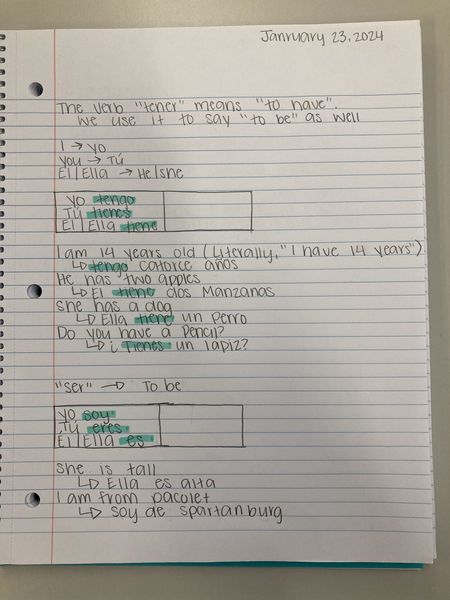 January 23, 2024
The verb "tener" means "to have".
we use it to say "to be" as well
I → yo
you → Tú
El/Ella → He/she
yo tengo
Tú tienes
El/Ella tiene
I am 14 years old (Literally, "I have 14 years")
↳ tengo catorce años
He has two apples
↳ El tiene dos Manzanas
she has a dog
↳ Ella tiene un perro
Do you have a pencil?
↳ ¿Tienes un lapiz?
"ser" → To be
yo soy
Tú eres
El/Ella es
she is tall
↳ Ella es alta
I am from pacolet
↳ soy de spartanburg